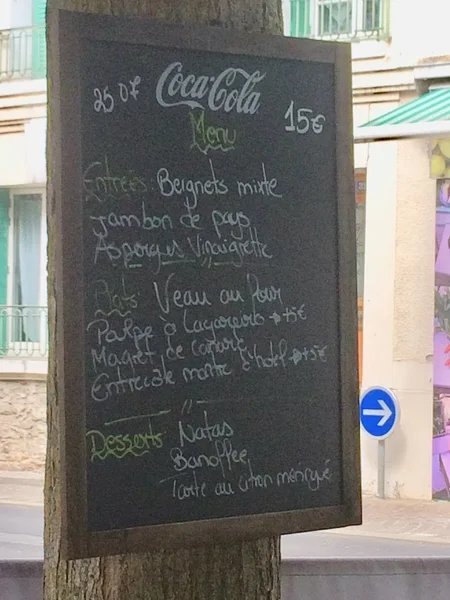 Coca-Cola
25 07
15€
Menu
Entrées: Beignets mixte
Jambon de pays
Asperges Vinaigrette
Plats: Veau au four
Poulpe a Lagareiro → +5€
Magret de canard
Entrecôte maitre d'hotel → +5€
Desserts Natas
Banoffee
Tarte au citron méringué